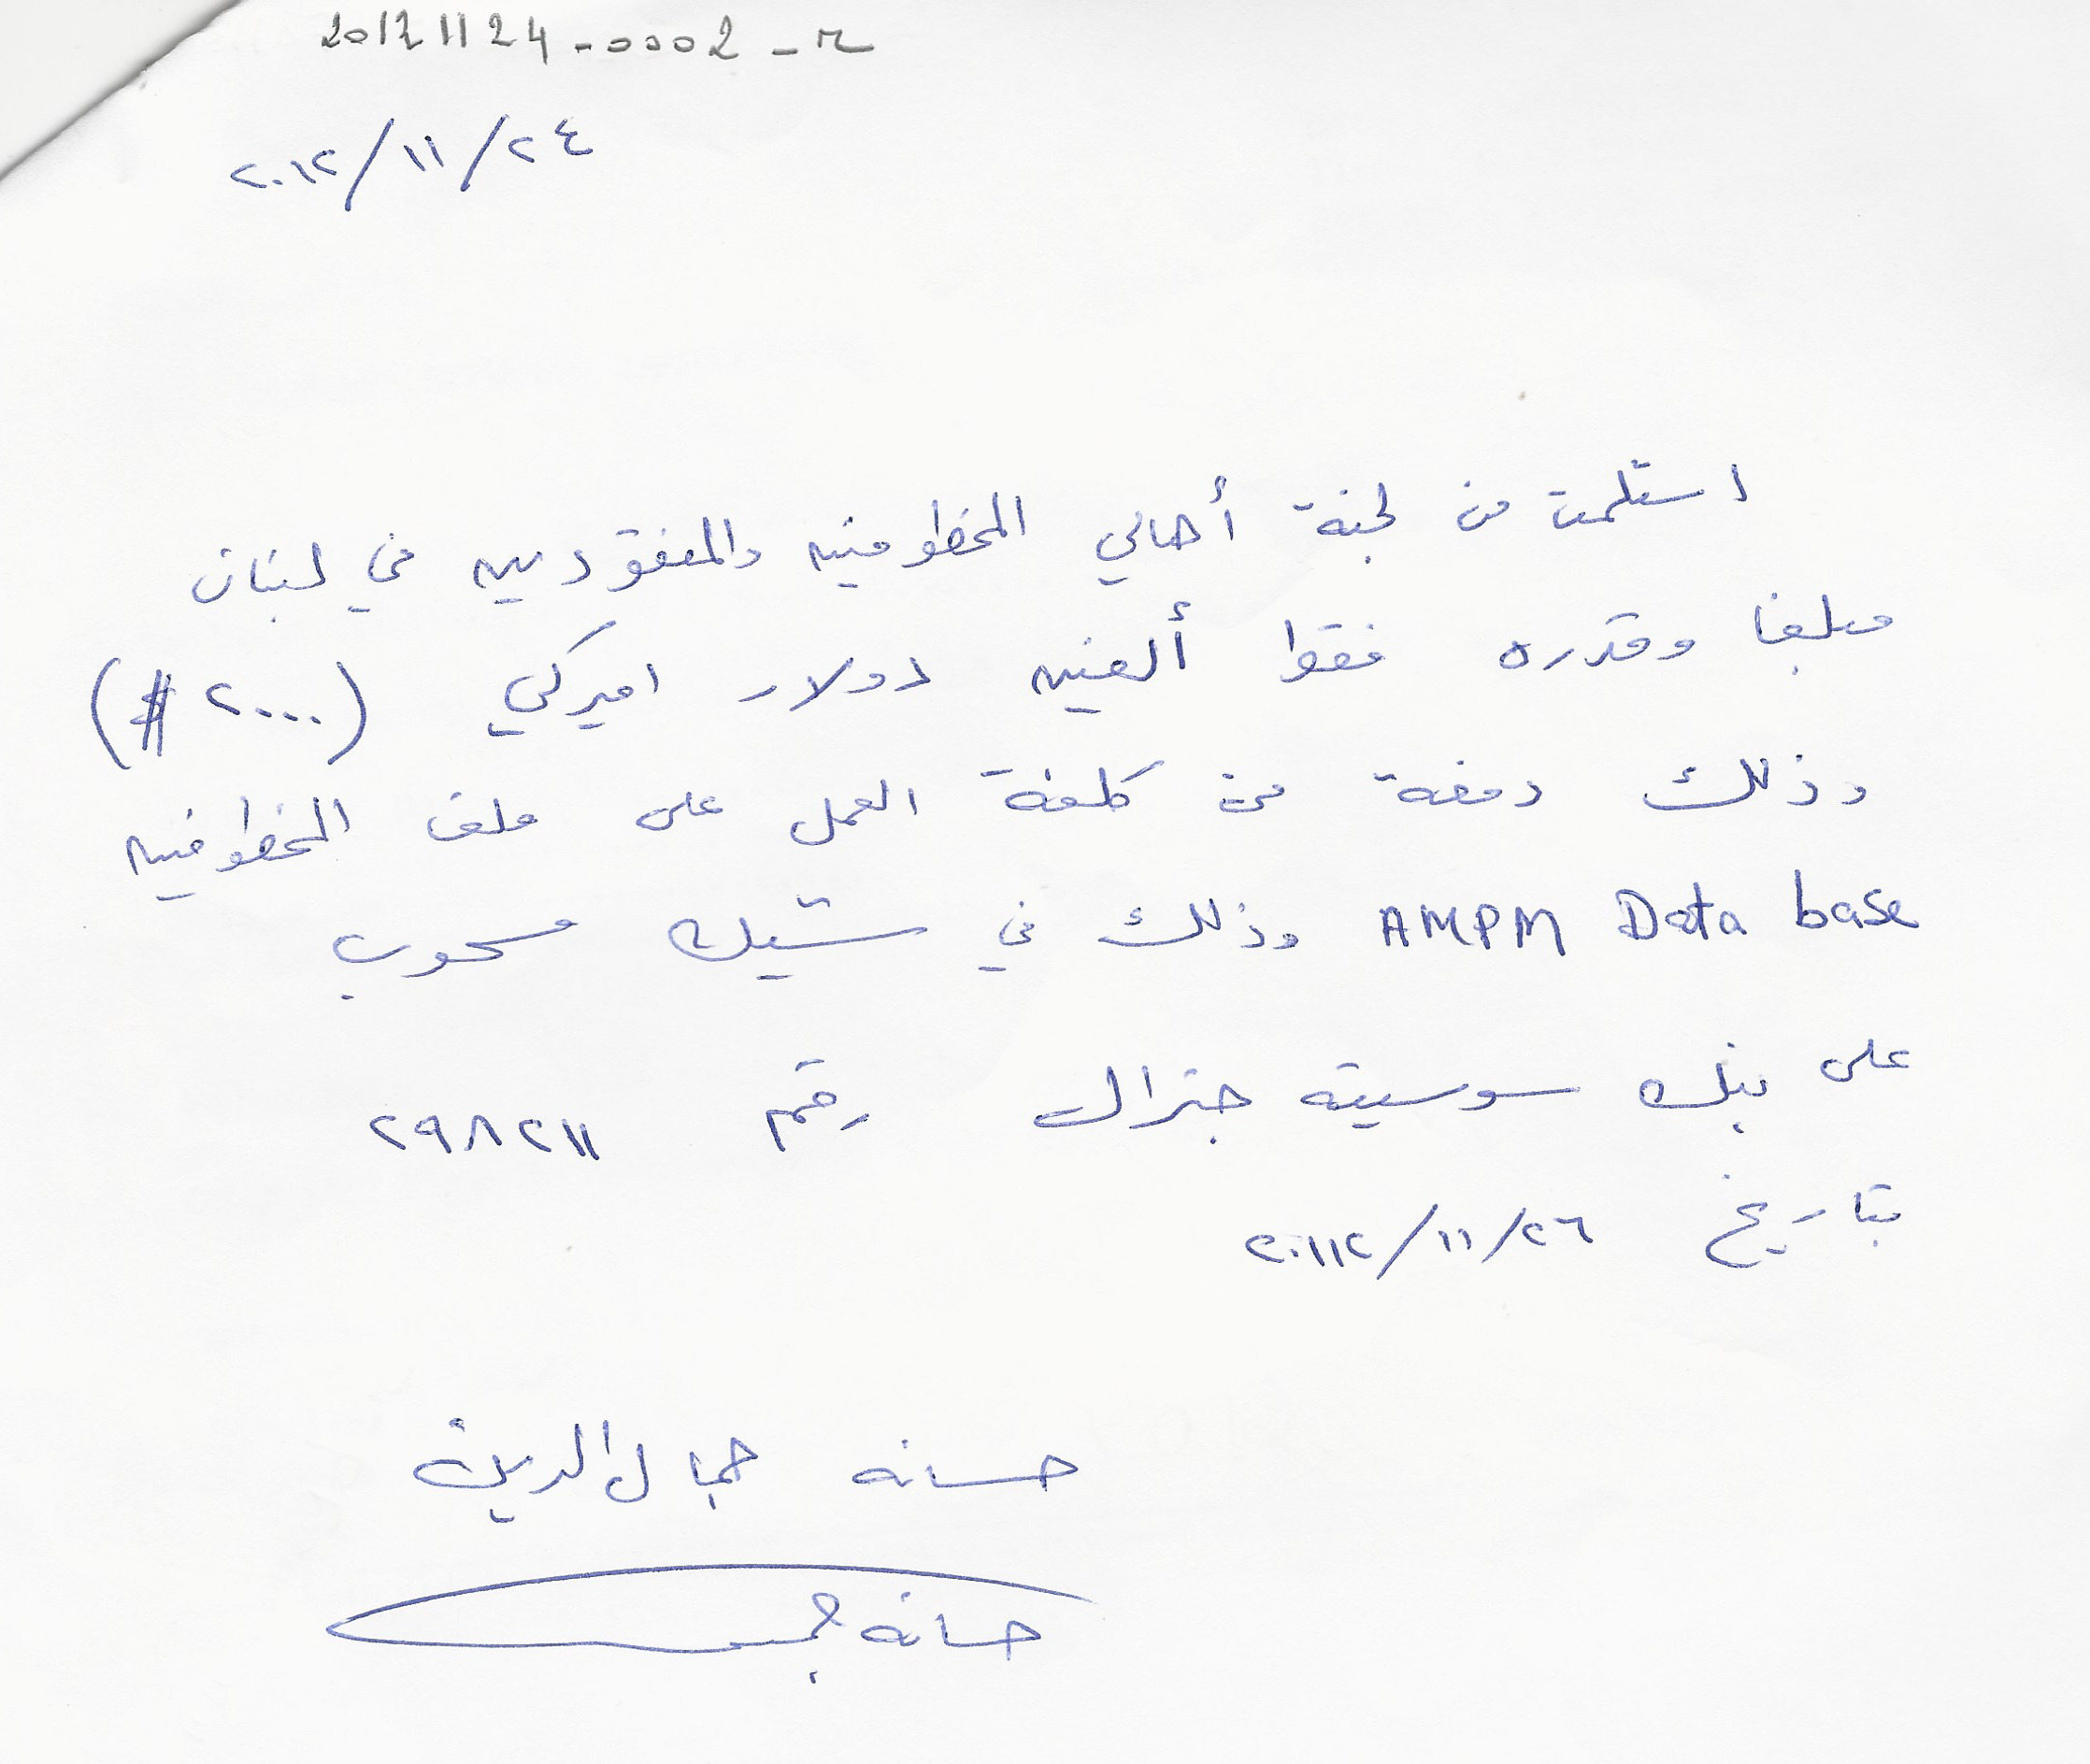 20121124-0002-r
٢٠١٢/١١/٢٤
استلمت من لجنة أهالي المخطوفين والمفقودين في لبنان
مبلغا وقدره فقط ألفين دولار اميركي (٢٠٠٠ $)
وذلك دفعة من كلفة العمل على ملف المخطوفين
AMPM Data base وذلك في شيك مسحوب
على بنك سوسيته جنرال رقم ٢٩٨٢١١
بتاريخ ٢٠١١٢/١١/٢٦
حسانه جمال الدين
حسانه